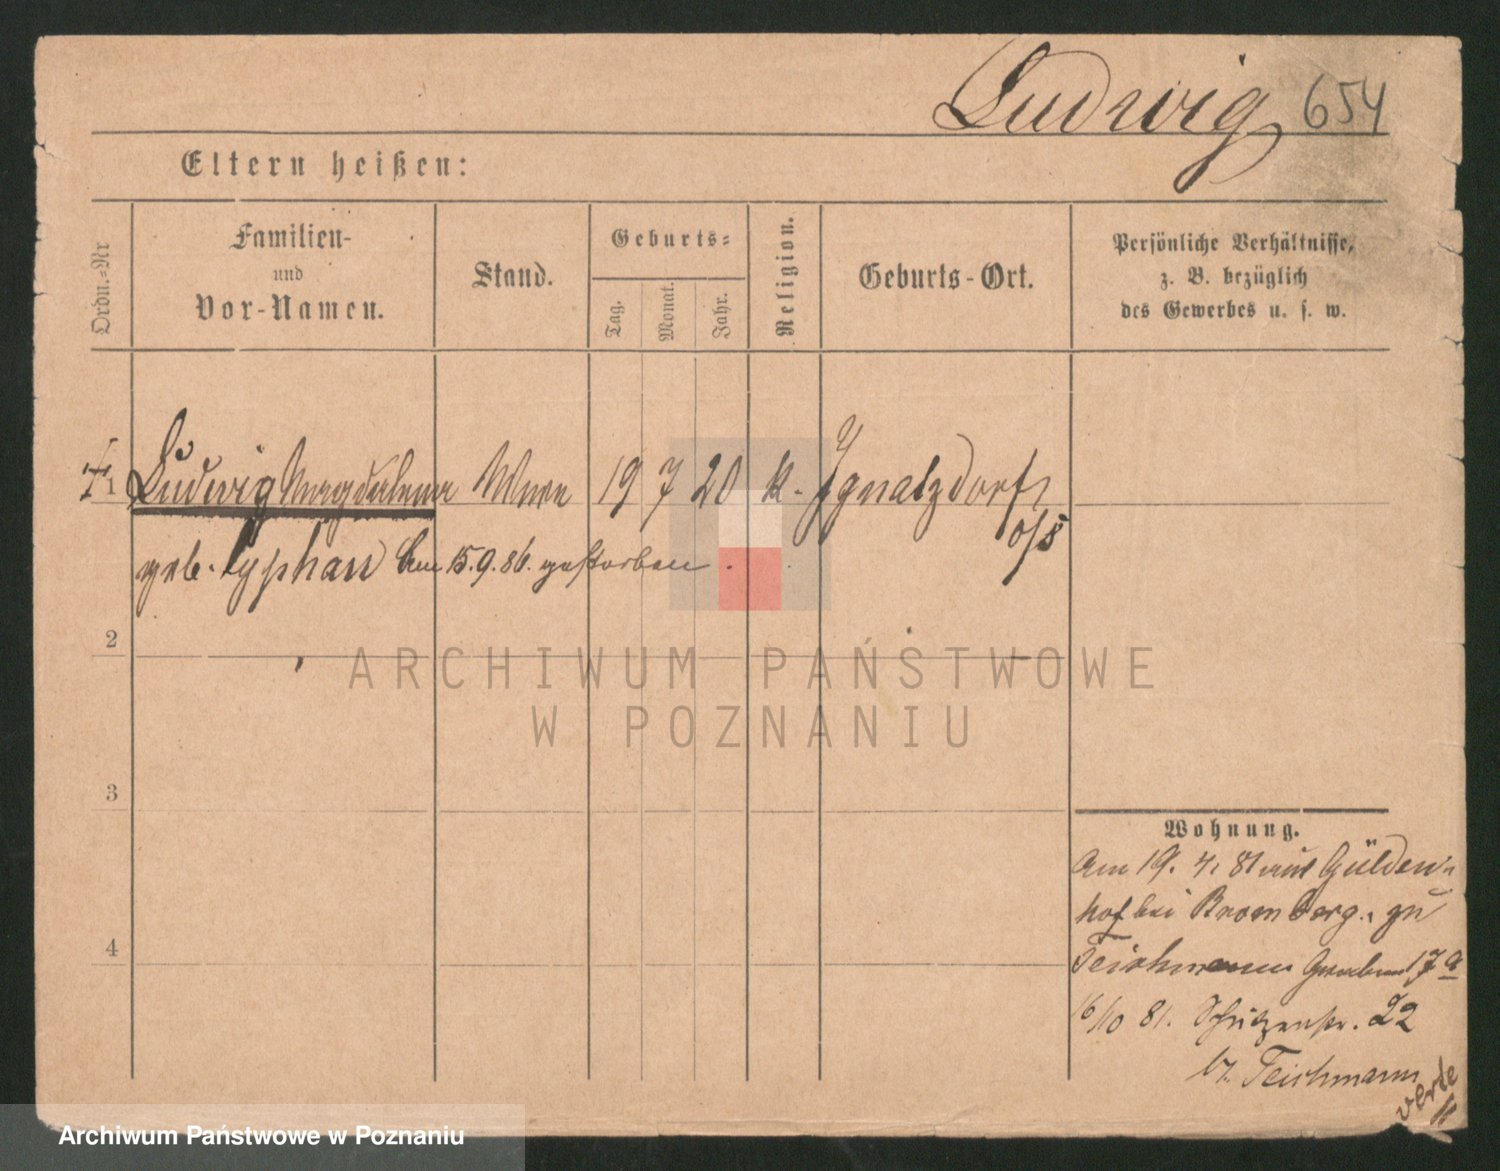 Ludwig 654
Eltern heißen:
Ordn.=Nr
Familien-
und
Vor-Namen.
Stand.
Geburts=
Tag.
Monat.
Jahr.
Religion.
Geburts-Ort.
Persönliche Verhältnisse,
z. B. bezüglich
des Gewerbes u. s. w.
1 Ludwig Magdalena Wwe 19 7 20 k. Ignatzdorf
o/s
geb. Typhan Am 15.9.86. gestorben.
2
ARCHIWUM PAŃSTWOWE
W POZNANIU
3
Wohnung.
Am 19. 4. 81 aus Gülden-
hof bei Bromberg. zu
4
Teichmann Graben 17a
16/10 81. Schützenstr. 22
b/. Teichmann
verte
Archiwum Państwowe w Poznaniu